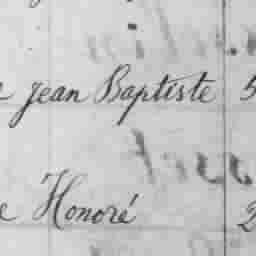 Jean Baptiste 5
Honoré 2